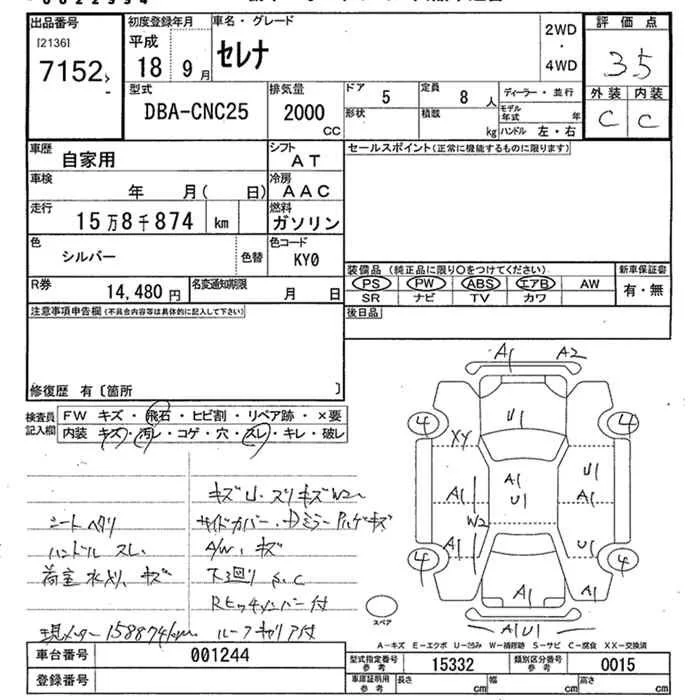 出品番号
[2136]
7152
初度登録年月
平成
18 9月
車名・グレード
セレナ
2WD
・
4WD
評価点
3.5
外装 内装
C C
型式
DBA-CNC25
排気量
2000
CC
ドア
5
形状
定員
8 人
積載
kg
ディーラー・並行
モデル年式 年
ハンドル 左・右
車歴
自家用
シフト
AT
車検
年 月( 日)
冷房
AAC
走行
15万8千874 km
燃料
ガソリン
色
シルバー
色替
色コード
KY0
R券
14,480円
名変通知期限
月 日
セールスポイント(正常に機能するものに限ります)
装備品 (純正品に限り○をつけてください)
PS PW ABS エアB AW
SR ナビ TV カワ
新車保証書
有・無
後日品
注意事項申告欄(不具合内容等は具体的に記入して下さい)
修復歴 有〔箇所 〕
検査員記入欄
FW キズ・飛石・ヒビ割・リペア跡・×要
内装 キズ・汚レ・コゲ・穴・スレ・キレ・破レ
シートヘタリ
ハンドルスレ
荷室 キズ
現メーター158874km
キズU・スリキズW2
サイドカバー・Dミラーハゲキズ
A/W、キズ
下廻り S,C
Rヒッチメンバー付
ルーフキャリア付
A1 A2
4 U1 4
XX
A1 U1
A1 U1 A1
W2
A1 U1
4 4
A1
A1 U1
スペア
A―キズ E―エクボ U―凹み W―補修跡 S―サビ C―腐食 XX―交換済
車台番号
001244
登録番号
型式指定番号
参考
15332
類別区分番号
参考
0015
車庫証明用
参考
長さ cm
幅 cm
高さ cm